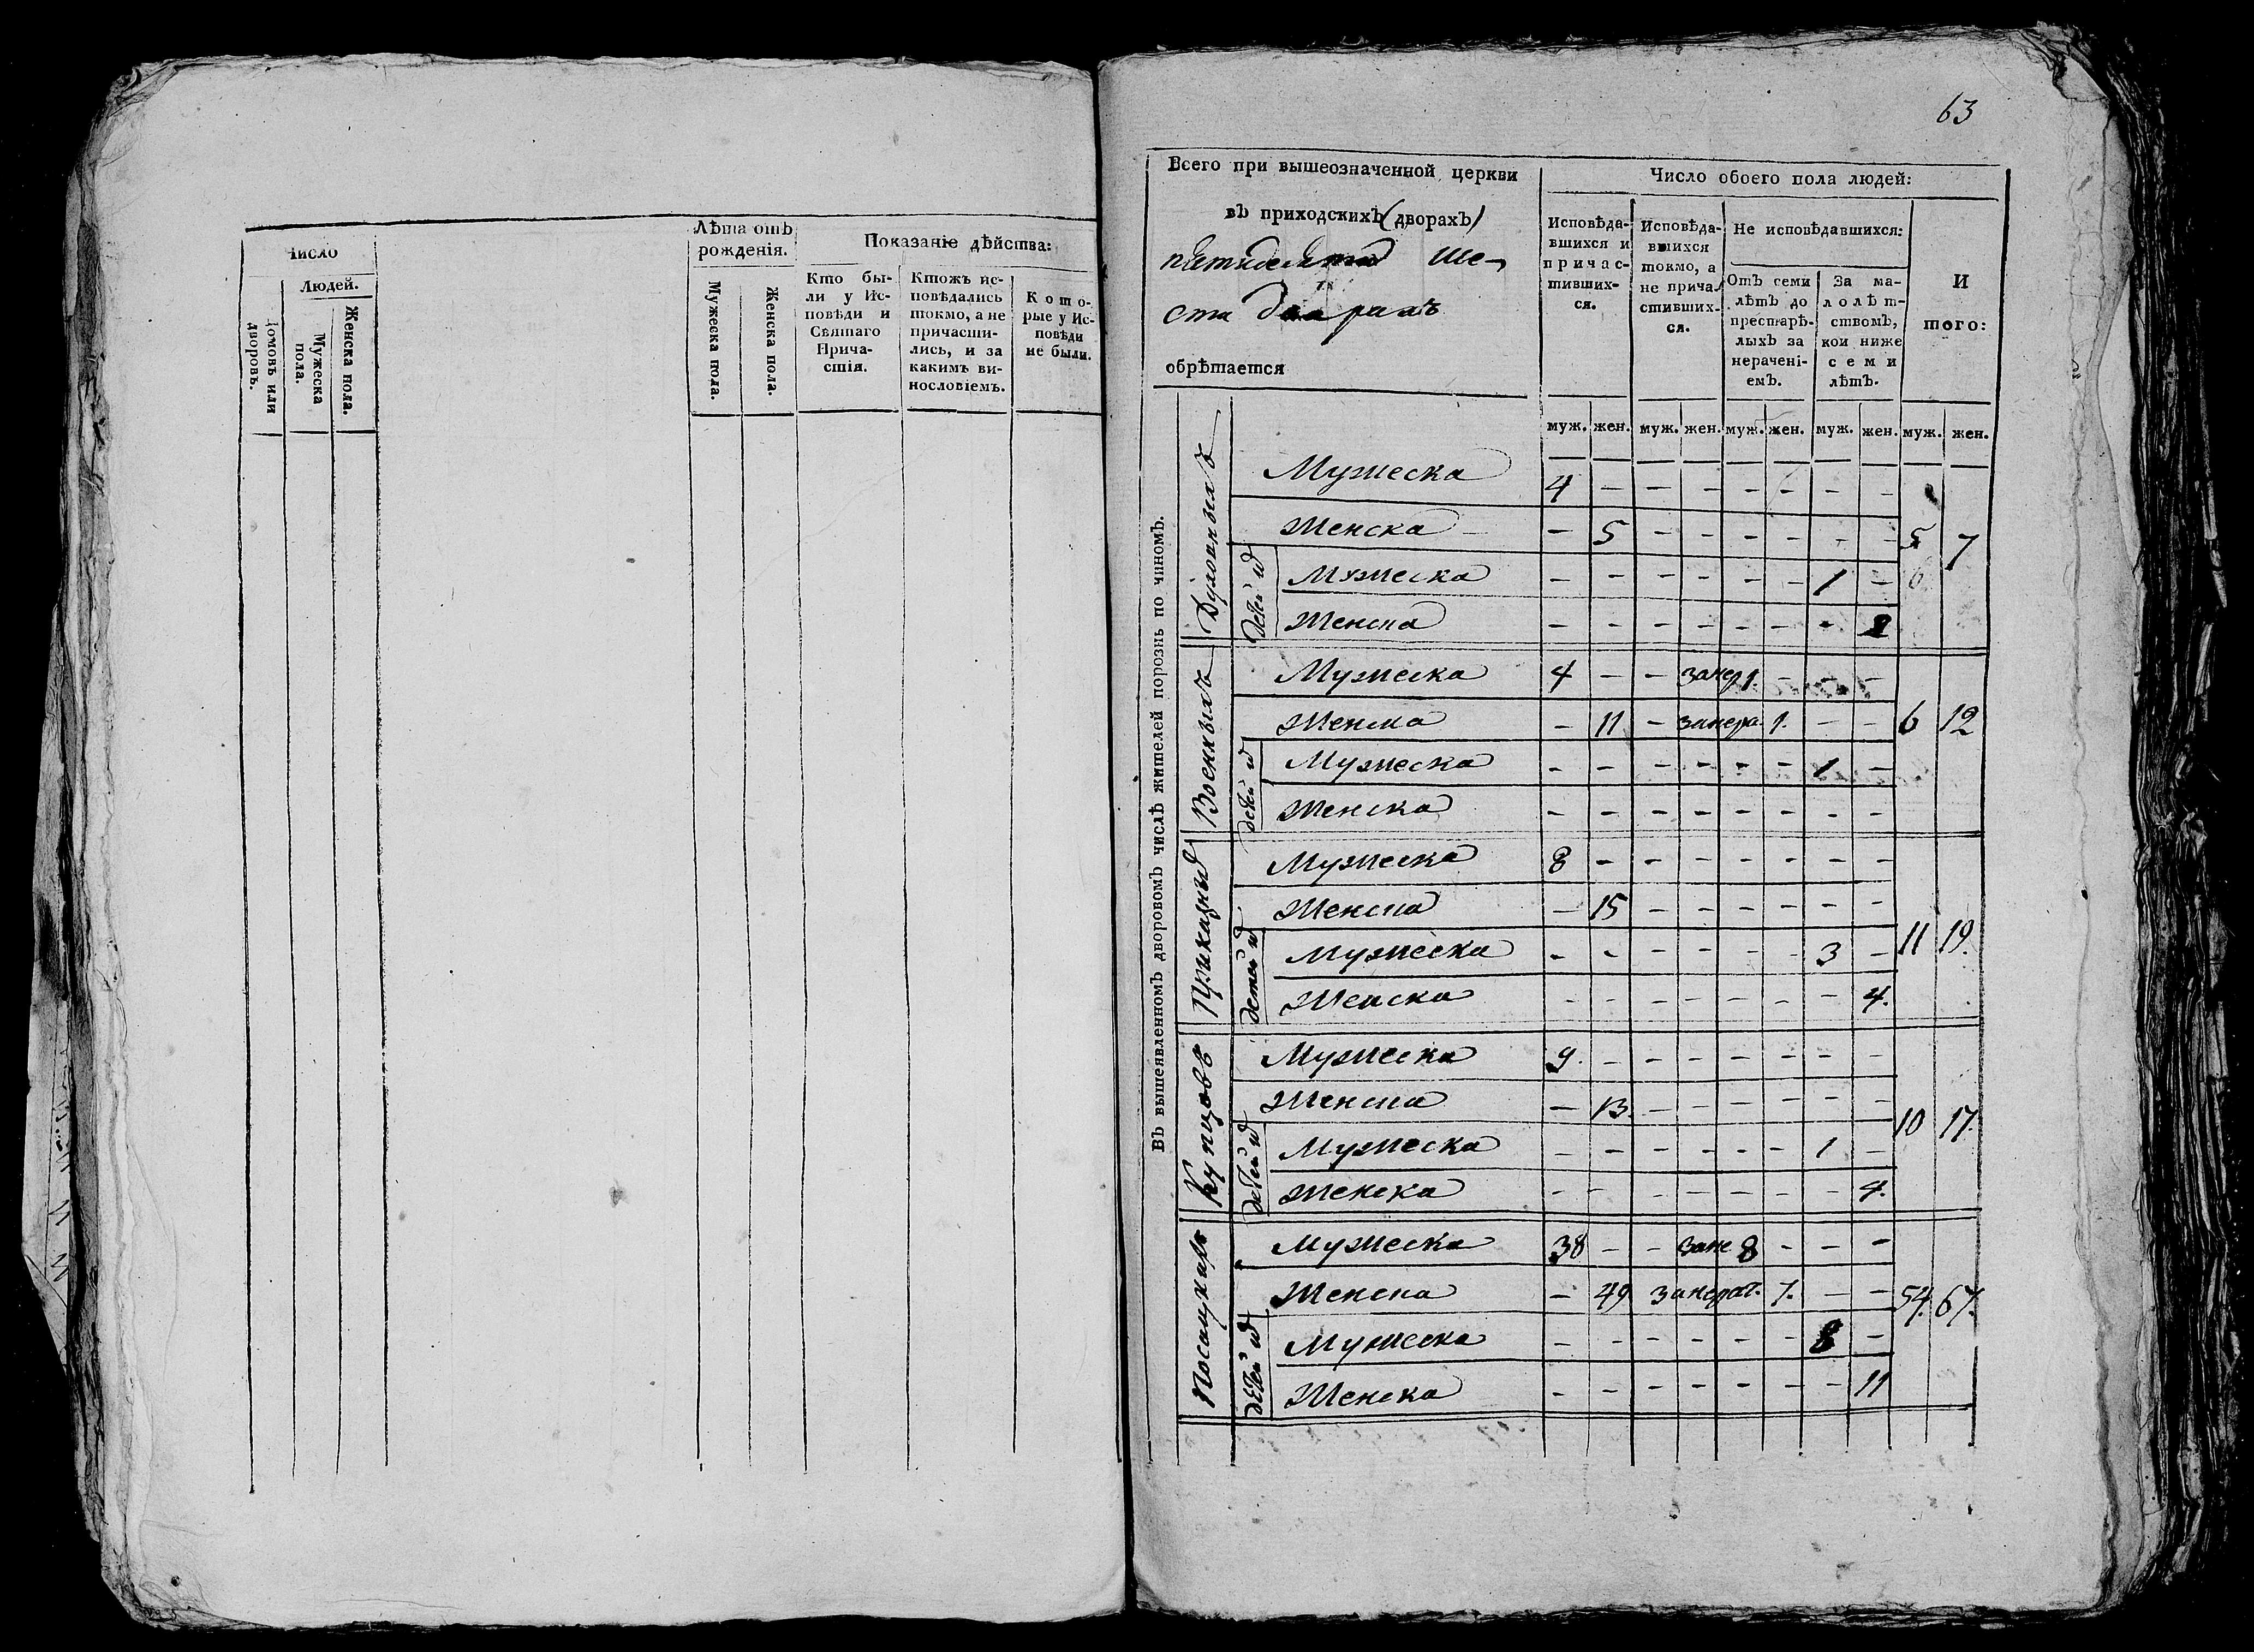 Число
Людей.
Домовъ или
дворовъ.
Мужеска
пола.
Женска пола.
Лѣта отъ
рожденія.
Мужеска пола.
Женска пола.
Показаніе дѣйства:
Кто бы-
ли у Ис-
повѣди и
Святаго
Прича-
стія.
Ктожъ ис-
повѣдались
токмо, а не
причасти-
лись, и за
какимъ ви-
нословіемъ.
Кото-
рые у Ис-
повѣди
не были.
63
Всего при вышеозначенной церкви
въ приходскихъ (дворахъ)
пятидесяти ше-
сти дворахъ
обрѣтается
Число обоего пола людей:
Исповѣда-
вшихся и
причас-
тивших-
ся.
Исповѣда-
вшихся
токмо, а
не прича-
стивших-
ся.
Не исповѣдавшихся:
Отъ семи
лѣтъ до
престарѣ-
лыхъ за
нерачені-
емъ.
За ма-
лолѣт-
ствомъ,
кои ниже
семи
лѣтъ.
И
того:
муж. жен. муж. жен. муж. жен. муж. жен. муж. жен.
Въ вышеявленномъ дворовомъ числѣ жителей порознь по чиномъ.
Духовныхъ
Мужеска 4 – – – – – – –
Женска – 5 – – – – – – 5 7
детей
Мужеска – – – – – – 1 – 6
Женска – – – – – – – 2
Военныхъ
Мужеска 4 – – занер 1. – – –
Женска – 11 – занера. 1. – – 6 12
детей
Мужеска – – – – – – 1 –
Женска – – – – – – – –
Приказныхъ
Мужеска 8 – – – – – – –
Женска – 15 – – – – – –
детей
Мужеска – – – – – – 3 – 11 19.
Женска – – – – – – – 4.
Купцовъ
Мужеска 9. – – – – – – –
Женска – 13. – – – – – – 10 17.
детей
Мужеска – – – – – – 1 –
Женска – – – – – – – 4.
Посацкихъ
Мужеска 38 – – зане 8 – – –
Женска – 49 занерат. 7. – – 54. 67.
детей
Мужеска – – – – – – 8 –
Женска – – – – – – – 11